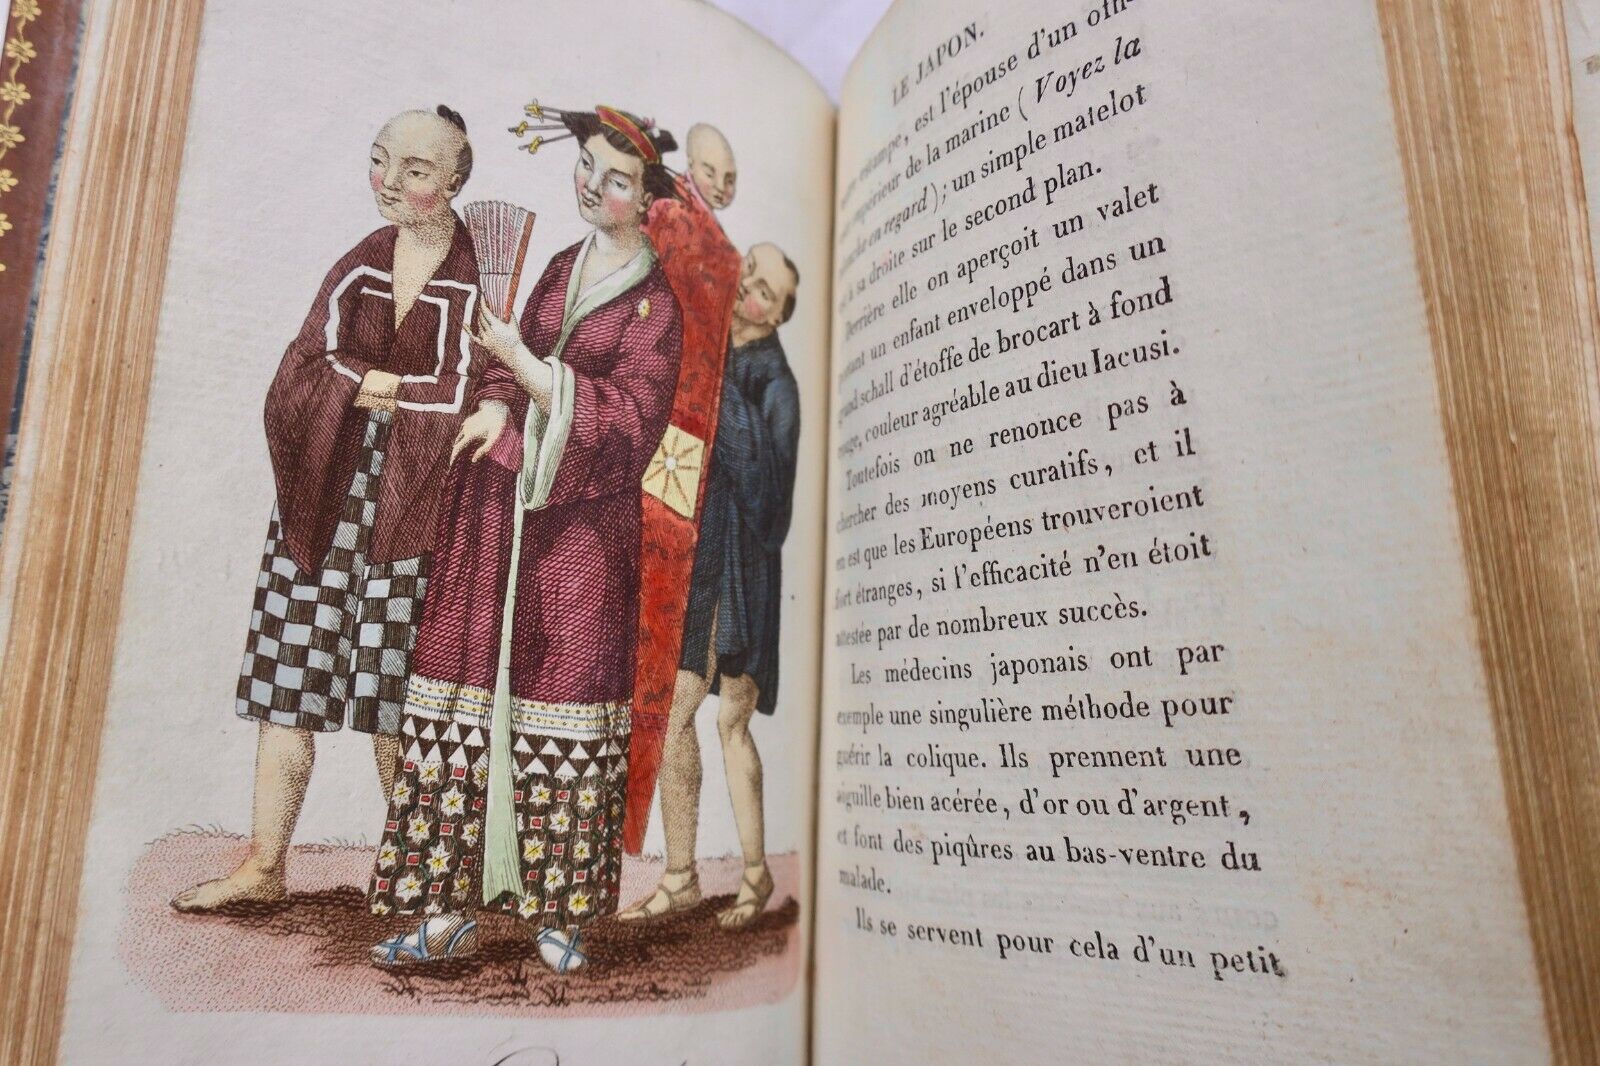 LE JAPON.
estampe, est l'épouse d'un offi-
supérieur de la marine ( Voyez la
en regard ); un simple matelot
à sa droite sur le second plan.
Derrière elle on aperçoit un valet
portant un enfant enveloppé dans un
grand schall d'étoffe de brocart à fond
rouge, couleur agréable au dieu Iacusi.
Toutefois on ne renonce pas à
chercher des moyens curatifs, et il
en est que les Européens trouveroient
fort étranges, si l'efficacité n'en étoit
attestée par de nombreux succès.
Les médecins japonais ont par
exemple une singulière méthode pour
guérir la colique. Ils prennent une
aiguille bien acérée, d'or ou d'argent,
et font des piqûres au bas-ventre du
malade.
Ils se servent pour cela d'un petit